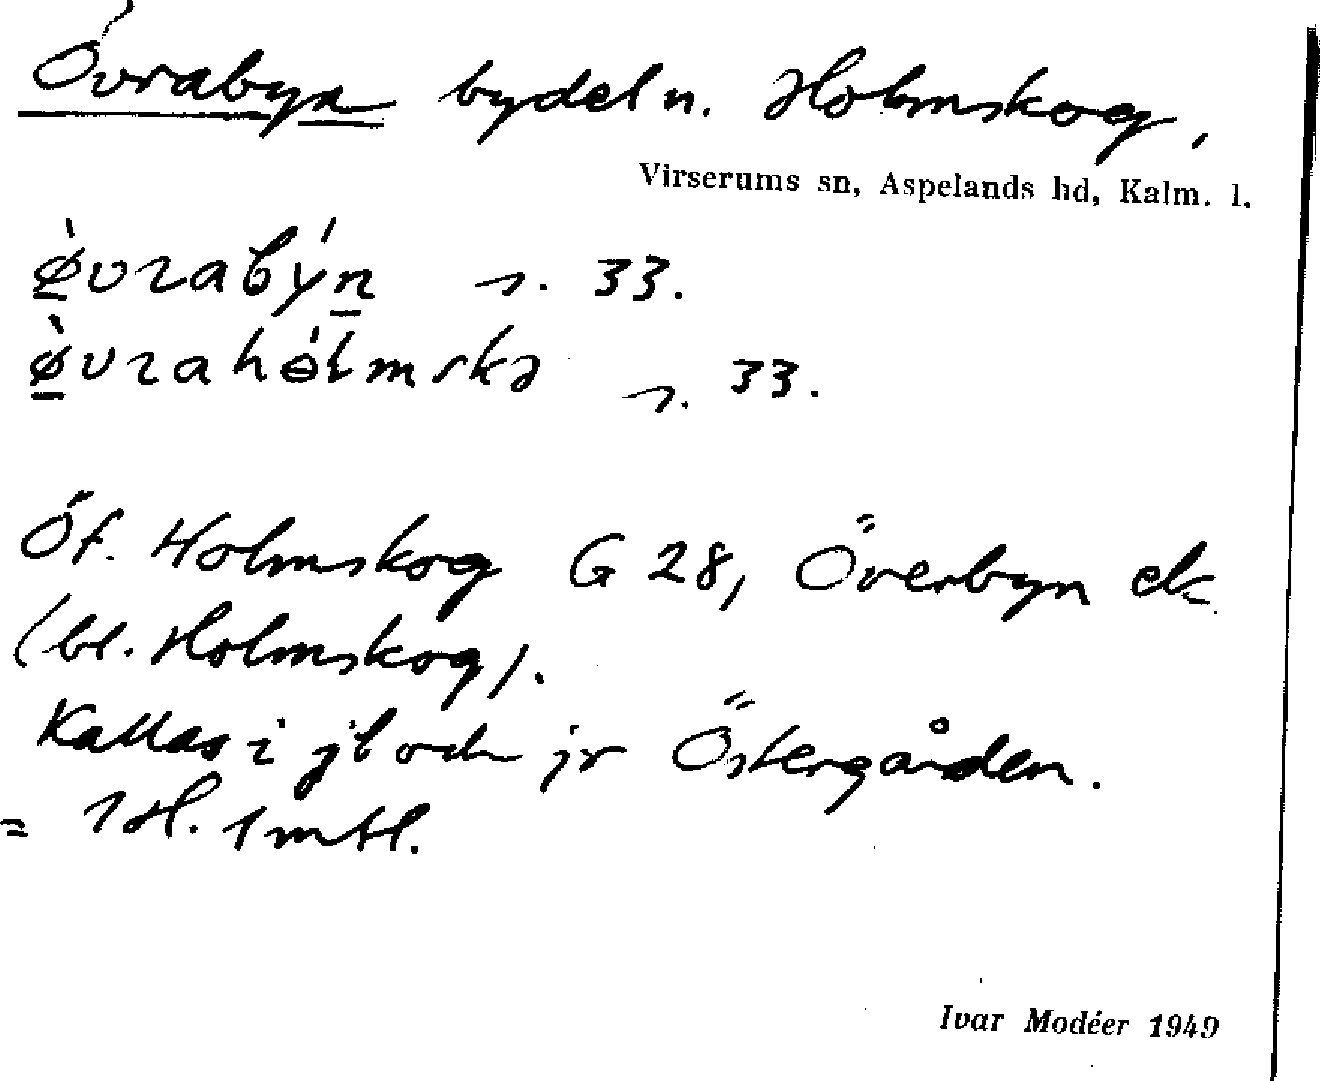 Övrabyn bydel n. Holmskog,
Virserums sn, Aspelands hd, Kalm. l.
ø̀vrabýn s. 33.
ø̀vrahólmskə s. 33.
Öf. Holmskog G 28, Överbyn ek
(bl. Holmskog).
Kallas i jb och jr Östergården.
= 1 hl. 1 mtl.
Ivar Modéer 1949